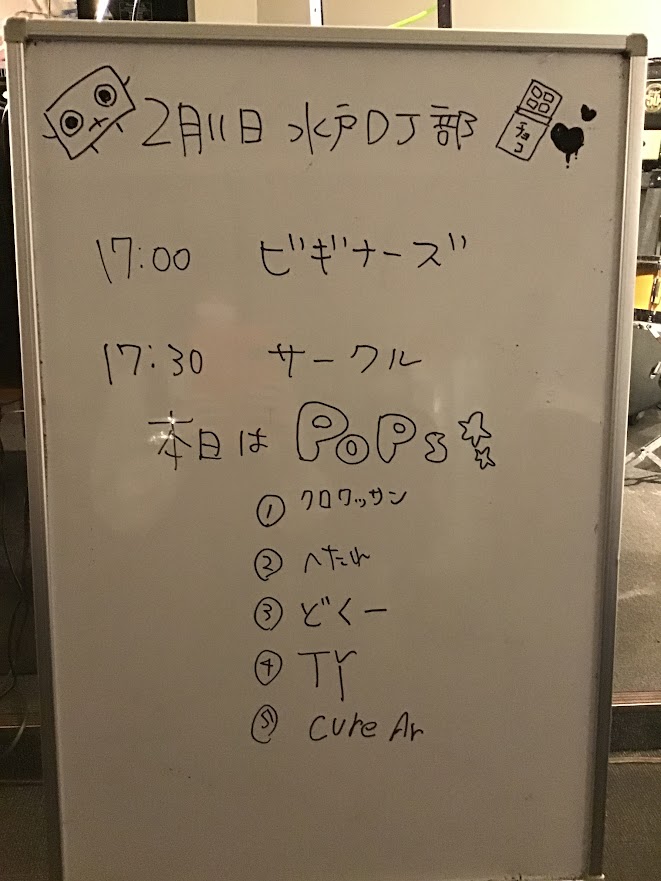 2月11日 水戸DJ部
チョコ
17:00 ビギナーズ
17:30 サークル
本日は POPS
① クロワッサン
② へたれ
③ どくー
④ TY
⑤ Cure Ar